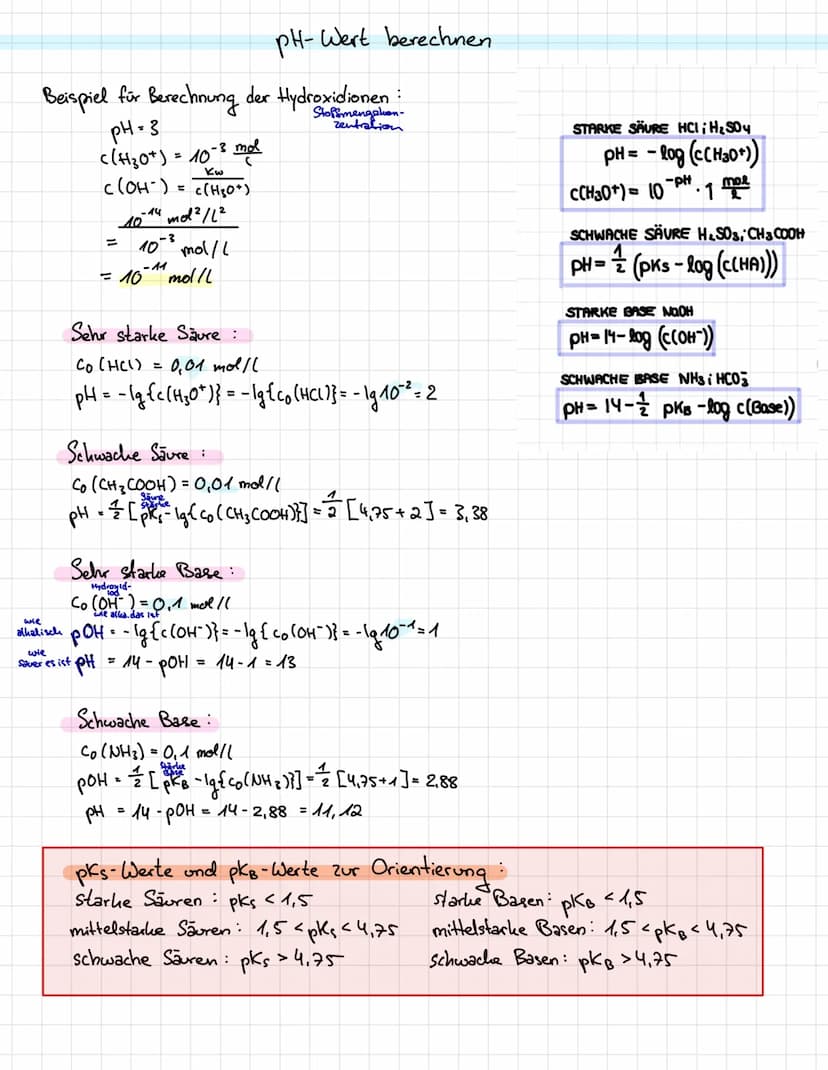 pH-Wert berechnen
Beispiel für Berechnung der Hydroxidionen:
Stoffmengenkon-
zentration
pH = 3
c(H₃O⁺) = 10⁻³ mol/L
c(OH⁻) = Kw / c(H₃O⁺)
= 10⁻¹⁴ mol²/L² / 10⁻³ mol/L
= 10⁻¹¹ mol/L
Sehr starke Säure:
C₀(HCl) = 0,01 mol/L
pH = -lg{c(H₃O⁺)} = -lg{c₀(HCl)} = -lg10⁻² = 2
Schwache Säure:
C₀(CH₃COOH) = 0,01 mol/L
Säure
stärke
pH = 1/2 [pKs - lg{c₀(CH₃COOH)}] = 1/2 [4,75 + 2] = 3,38
Sehr starke Base:
Hydroxid-
C₀(OH⁻) = 0,1 mol/L
wie alka. das ist
wie
alkalisch pOH = -lg{c(OH⁻)} = -lg{c₀(OH⁻)} = -lg10⁻¹ = 1
wie
sauer es ist pH = 14 - pOH = 14 - 1 = 13
Schwache Base:
C₀(NH₃) = 0,1 mol/L
Stärke
Base
pOH = 1/2 [pKB - lg{c₀(NH₃)}] = 1/2 [4,75 + 1] = 2,88
pH = 14 - pOH = 14 - 2,88 = 11,12
STARKE SÄURE HCl; H₂SO₄
pH = -log(c(H₃O⁺))
c(H₃O⁺) = 10⁻ᵖᴴ · 1 mol/L
SCHWACHE SÄURE H₂SO₃; CH₃COOH
pH = 1/2 (pKs - log(c(HA)))
STARKE BASE NaOH
pH = 14 - log(c(OH⁻))
SCHWACHE BASE NH₃; HCO₃⁻
pH = 14 - 1/2 pKB - log c(Base))
pKs-Werte und pKB-Werte zur Orientierung:
starke Säuren: pKs < 1,5
starke Basen: pKB < 1,5
mittelstarke Säuren: 1,5 < pKs < 4,75
mittelstarke Basen: 1,5 < pKB < 4,75
schwache Säuren: pKs > 4,75
schwache Basen: pKB > 4,75